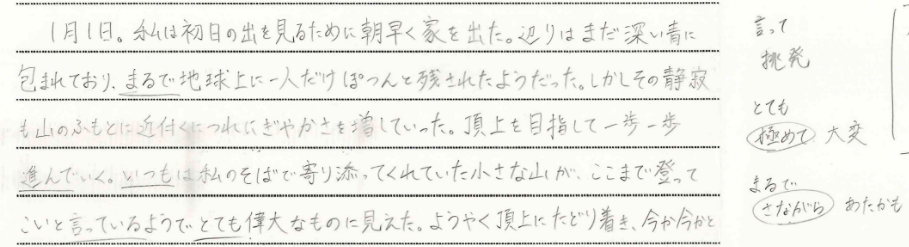 1月1日。私は初日の出を見るために朝早く家を出た。辺りはまだ深い青に
包まれており、まるで地球上に一人だけぽつんと残されたようだった。しかしその静寂
も山のふもとに近付くにつれにぎやかさを増していった。頂上を目指して一歩一歩
進んでいく。いつもは私のそばで寄り添ってくれていた小さな山が、ここまで登って
こいと言っているようでとても偉大なものに見えた。ようやく頂上にたどり着き、今か今かと
言って
挑発
とても
極めて 大変
まるで
さながら あたかも